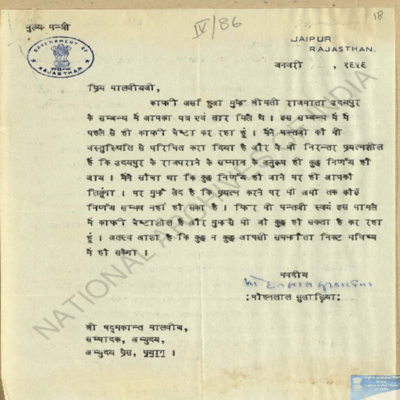 मुख्य मन्त्री
IV/86
18
GOVERNMENT OF RAJASTHAN
JAIPUR
RAJASTHAN.
जनवरी , १९५६
प्रिय मालवीयजी,
काफी अर्सा हुआ मुझे श्रीमती राजमाता उदयपुर
के सम्बन्ध में आपका पत्र एवं तार मिले थे । इस सम्बन्ध में मैं
पहले से ही काफी चेष्टा कर रहा हूं । मैंने पन्तजी को भी
वस्तुस्थिति से परिचित करा दिया है और वे भी निरन्तर प्रयत्नशील
हैं कि उदयपुर के राजघराने के सम्मान के अनुरूप ही कुछ निर्णय हो
जाय । मैंने सोचा था कि कुछ निर्णय हो जाने पर ही आपको
लिखूंगा । पर मुझे खेद है कि प्रयत्न करने पर भी अभी तक कोई
निर्णय सम्भव नहीं हो सका है । फिर भी पन्तजी स्वयं इस मामले
में काफी चेष्टाशील हैं और मुझ से भी जो कुछ हो सकता है कर रहा
हूं । अतएव आशा है कि कुछ न कुछ आपसी समझौता निकट भविष्य
में हो सकेगा ।
भवदीय
मोहनलाल सुखाड़िया
:मोहनलाल सुखाड़िया:
श्री पद्मकान्त मालवीय,
सम्पादक, अभ्युदय,
अभ्युदय प्रेस, प्रयाग ।
NATIONAL ARCHIVES OF INDIA